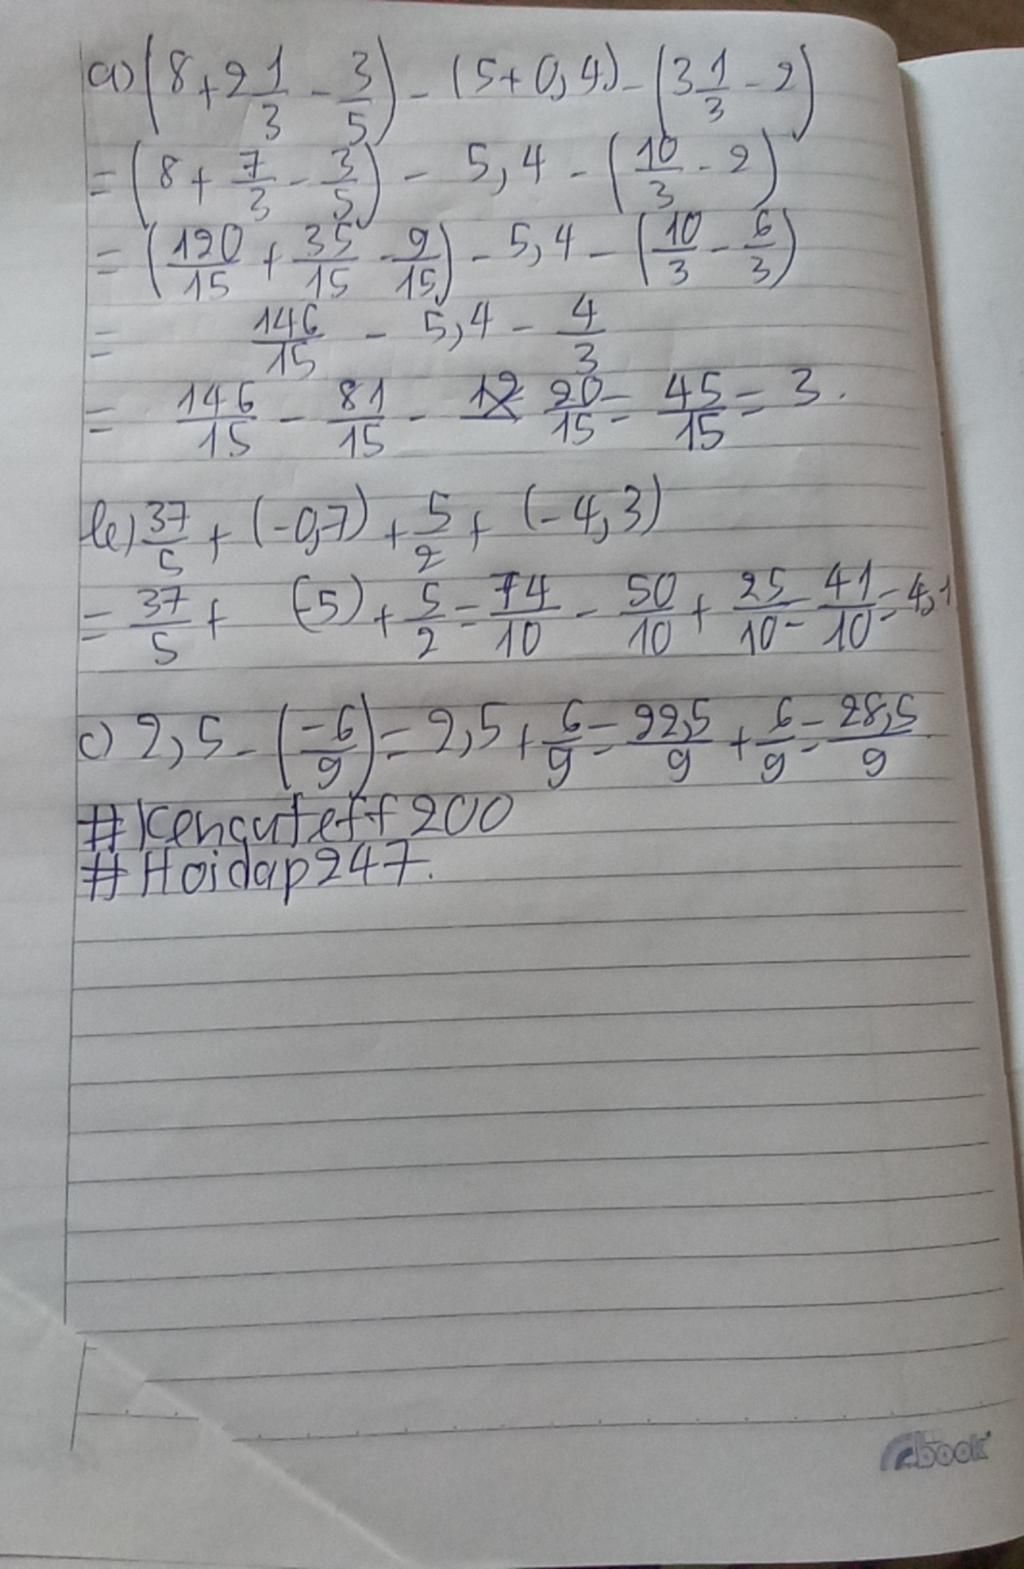 a) (8 + 2 1/3 - 3/5) - (5 + 0,4) - (3 1/3 - 2)
= (8 + 7/3 - 3/5) - 5,4 - (10/3 - 2)
= (120/15 + 35/15 - 9/15) - 5,4 - (10/3 - 6/3)
= 146/15 - 5,4 - 4/3
= 146/15 - 81/15 - 20/15 = 45/15 = 3.
b) 37/5 + (-0,7) + 5/2 + (-4,3)
= 37/5 + (-5) + 5/2 = 74/10 - 50/10 + 25/10 = 41/10 = 4,1
c) 2,5 - (-6/9) = 2,5 + 6/9 = 22,5/9 + 6/9 = 28,5/9
#Kenguteff200
#Hoidap247.
book